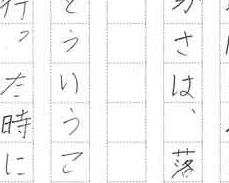 さは、落
ういうこ
行った時に